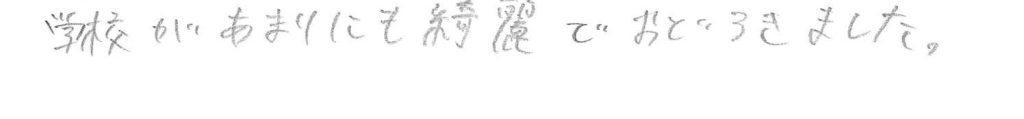 学校があまりにも綺麗でおどろきました。